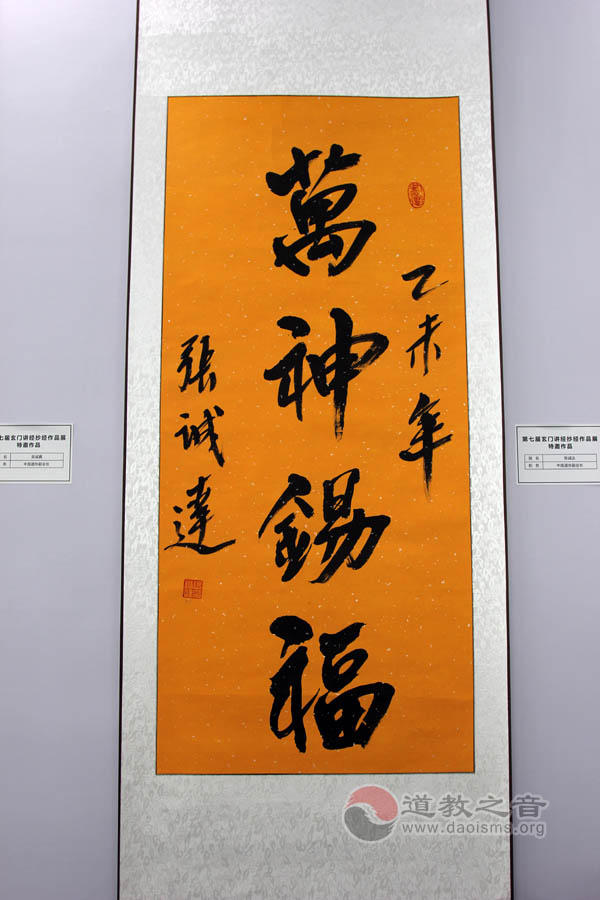 乙未年
萬神錫福
張誠達
七届玄门讲经抄经作品展
特邀作品
第七届玄门讲经抄经作品展
特邀作品
姓 名 张诚达
道教之音
www.daoisms.org